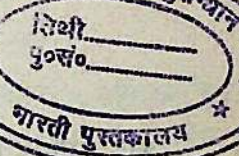 तिथी
पु०सं०
भारती पुस्तकालय